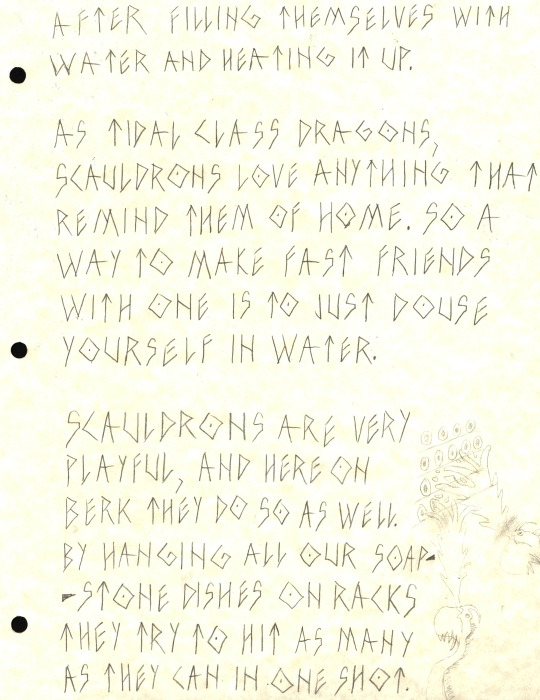 AFTER FILLING THEMSELVES WITH
WATER AND HEATING IT UP.
AS TIDAL CLASS DRAGONS,
SCAULDRONS LOVE ANYTHING THAT
REMIND THEM OF HOME. SO A
WAY TO MAKE FAST FRIENDS
WITH ONE IS TO JUST DOUSE
YOURSELF IN WATER.
SCAULDRONS ARE VERY
PLAYFUL, AND HERE ON
BERK THEY DO SO AS WELL.
BY HANGING ALL OUR SOAP-
-STONE DISHES ON RACKS
THEY TRY TO HIT AS MANY
AS THEY CAN IN ONE SHOT.